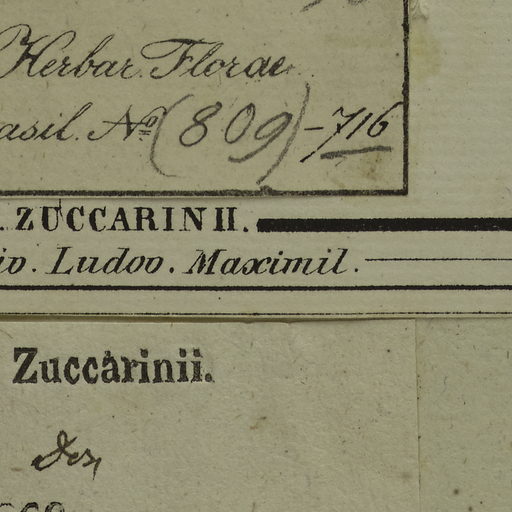 Herbar. Florae
asil. Nº (809) - 716
. ZUCCARINII.
io. Ludov. Maximil.
Zuccarinii.